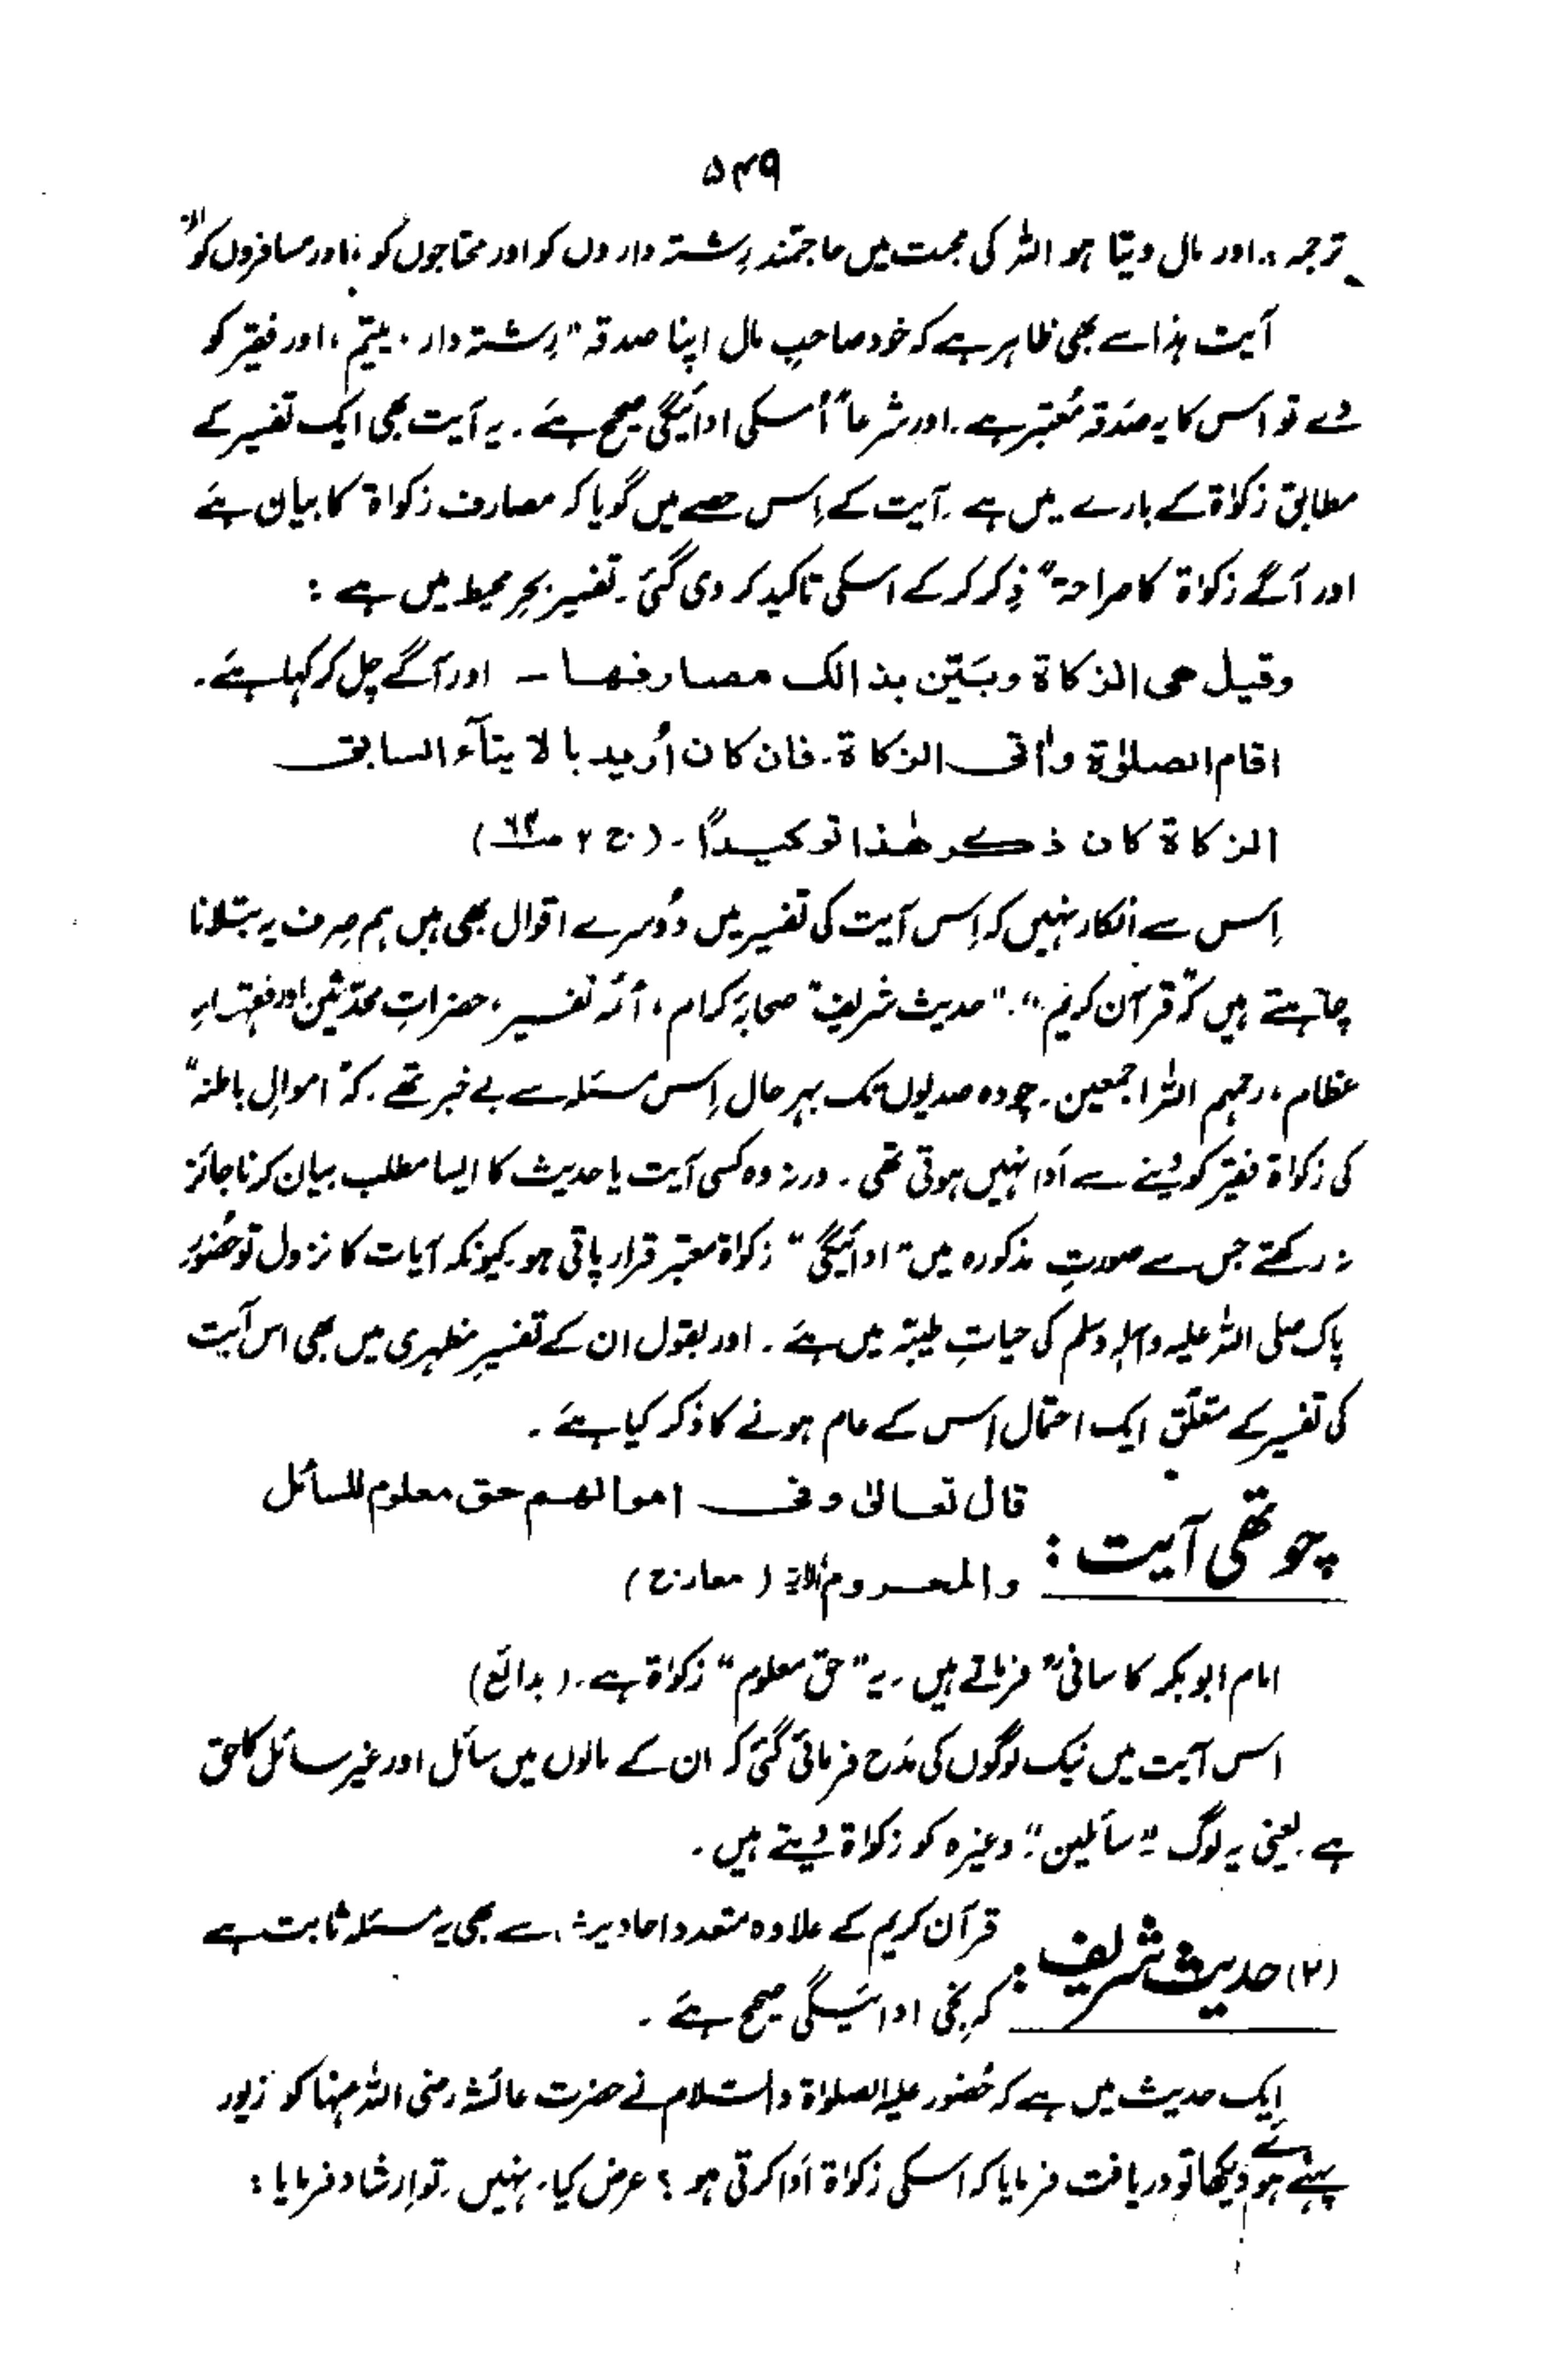 ۵۴۹
ترجمہ "اور مال دیتا ہو اللہ کی محبت میں حاجتمند رِشتہ داروں کو اور محتاجوں کو، اور مسافروں کو الخ"
آیت ہذا سے بھی ظاہر ہے کہ خود صاحبِ مال اپنا صدقہ "رِشتہ دار، یتیم، اور فقیر کو
دے تو اس کا یہ صَدقہ مُعتبر ہے۔ اور شرعاً اُسکی ادائیگی صحیح ہے۔ یہ آیت بھی ایک تفسیر کے
مطابق زکوٰۃ کے بارے میں ہے۔ آیت کے اِس حصے میں گویا کہ مصارف زکواۃ کا بیان ہے
اور آگے زکواۃ کا صراحۃً ذِکر کر کے اسکی تاکید کر دی گئی۔ تفسیر بحرِ محیط میں ہے :
وقیل ھی الزکاۃ وبَیّن بذالک مصارفھا – اور آگے چل کر کہا ہے۔
اقام الصلوٰۃ واٰتی الزکاۃ۔ فان کان اُرید بالایتآء السابق
الزکاۃ کان ذکر ھٰذا توکیداً۔ (ج ۲ ص۶۳)
اِس سے انکار نہیں کہ اِس آیت کی تفسیر میں دُوسرے اقوال بھی ہیں ہم صِرف یہ بتلانا
چاہتے ہیں کہ "قرآن کریم"۔ "حدیث شریف" صحابہَ کرام، اَئمہ تفسیر، حضراتِ محدّثین اور فقہاءِ
عظام، رحمہم اللہ اجمعین۔ چودہ صدیوں تک بہرحال اِس مسئلہ سے بے خبر تھے۔ کہ "اموالِ باطنہ"
کی زکواۃ فقیر کو دینے سے اَدا نہیں ہوتی تھی۔ ورنہ وہ کسی آیت یا حدیث کا ایسا مطلب بیان کرنا جائز
نہ رکھتے جس سے صورتِ مذکورہ میں "ادائیگی" زکواۃ معتبر قرار پاتی ہو۔ کیونکہ آیات کا نزول تو حضُور
پاک صلی اللہ علیہ واٰلہٖ وسلم کی حیاتِ طیبّہ میں ہے۔ اور بقول ان کے تفسیرِ مظہری میں بھی اس آیت
کی تفسیر کے متعلّق ایک احتمال اِس کے عام ہونے کا ذکر کیا ہے۔
چوتھی آیت : قال تعالیٰ وفی اموالھم حق معلوم للسائل
والمحروم الایۃ (معارج)
امام ابوبکر کاسانیؒ فرماتے ہیں۔ یہ "حق معلوم" زکواۃ ہے۔ (بدائع)
اس آیت میں نیک لوگوں کی مَدح فرمائی گئی کہ ان کے مالوں میں سائل اور غیر سائل کا حق
ہے۔ یعنی یہ لوگ "سائلین" وغیرہ کو زکواۃ دیتے ہیں۔
(۲) حدیث شریف : قرآن کریم کے علاوہ متعدد احادیث سے بھی یہ مسئلہ ثابت ہے
کہ نجی ادائیگی صحیح ہے۔
ایک حدیث میں ہے کہ حُضور علیہ الصلواۃ والسّلام نے حضرت عائشہ رضی اللہ عنہا کو زیور
پہنے ہوئے دیکھا تو دریافت فرمایا کہ اسکی زکواۃ اَدا کرتی ہو؟ عرض کیا۔ نہیں۔ تو اِرشاد فرمایا :